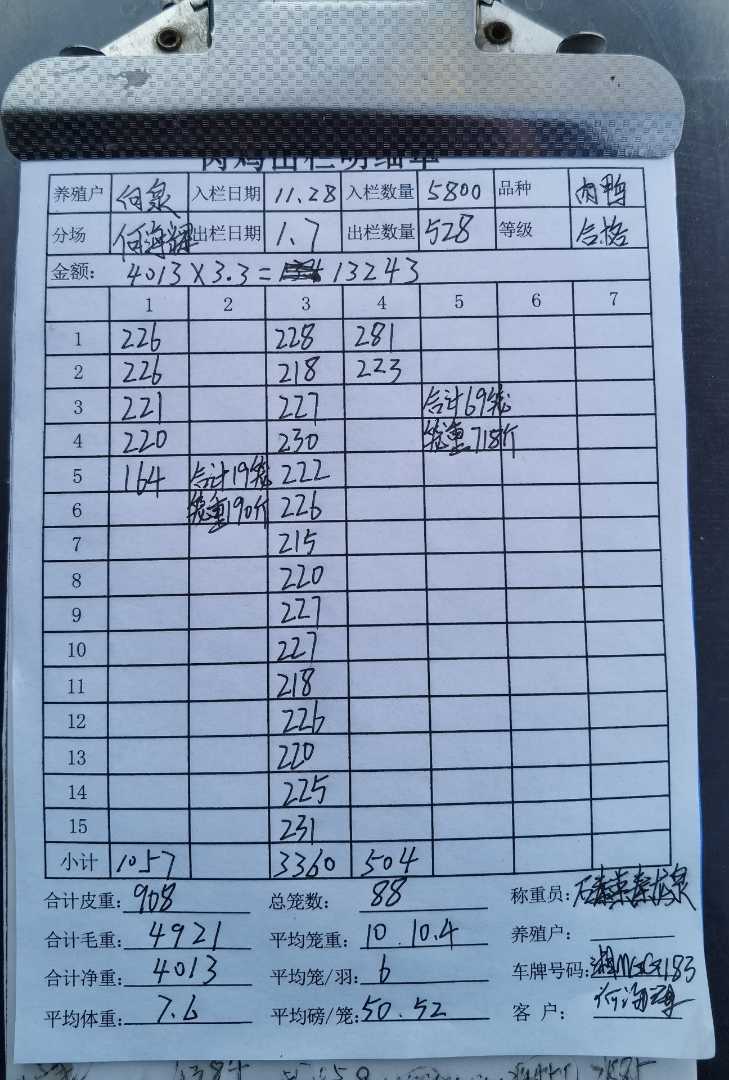 肉鸡出栏明细单
养殖户 向泉 入栏日期 11.28 入栏数量 5800 品种 肉鸭
分场 何海辉 出栏日期 1.7 出栏数量 528 等级 合格
金额: 4013×3.3= 13243
1 2 3 4 5 6 7
1 226 228 281
2 226 218 223
3 221 227 合计69笼
4 220 230 笼重718斤
5 164 合计19笼 222
6 笼重190斤 226
7 215
8 220
9 227
10 227
11 218
12 226
13 220
14 225
15 231
小计 1057 3360 504
合计皮重: 908 总笼数: 88 称重员:
合计毛重: 4921 平均笼重: 10 10.4 养殖户:
合计净重: 4013 平均笼/羽: 6 车牌号码: 湘M 183
平均体重: 7.6 平均磅/笼: 50.52 客户: 何海辉